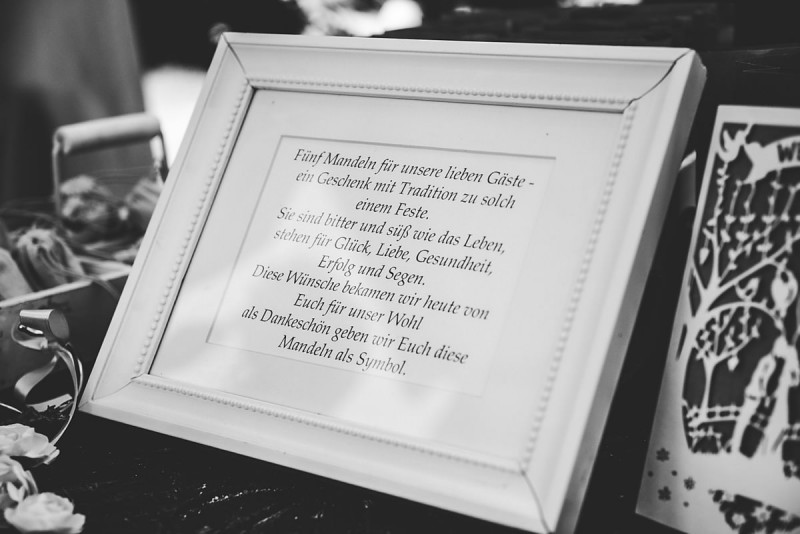 Fünf Mandeln für unsere lieben Gäste -
ein Geschenk mit Tradition zu solch
einem Feste.
Sie sind bitter und süß wie das Leben,
stehen für Glück, Liebe, Gesundheit,
Erfolg und Segen.
Diese Wünsche bekamen wir heute von
Euch für unser Wohl
als Dankeschön geben wir Euch diese
Mandeln als Symbol.